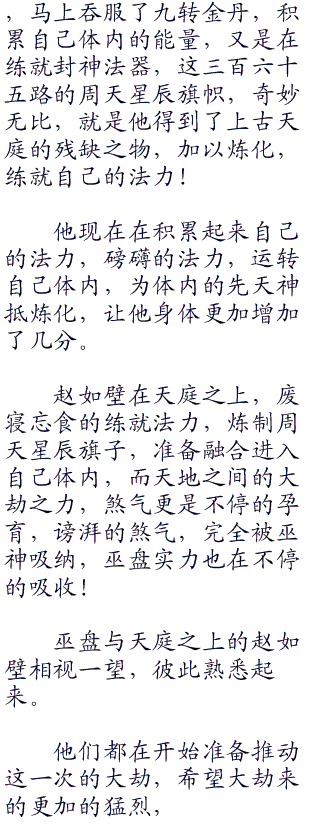 ，马上吞服了九转金丹，积
累自己体内的能量，又是在
练就封神法器，这三百六十
五路的周天星辰旗帜，奇妙
无比，就是他得到了上古天
庭的残缺之物，加以炼化，
练就自己的法力！
他现在在积累起来自己
的法力，磅礴的法力，运转
自己体内，为体内的先天神
抵炼化，让他身体更加增加
了几分。
赵如壁在天庭之上，废
寝忘食的练就法力，炼制周
天星辰旗子，准备融合进入
自己体内，而天地之间的大
劫之力，煞气更是不停的孕
育，谤湃的煞气，完全被巫
神吸纳，巫盘实力也在不停
的吸收！
巫盘与天庭之上的赵如
壁相视一望，彼此熟悉起
来。
他们都在开始准备推动
这一次的大劫，希望大劫来
的更加的猛烈，